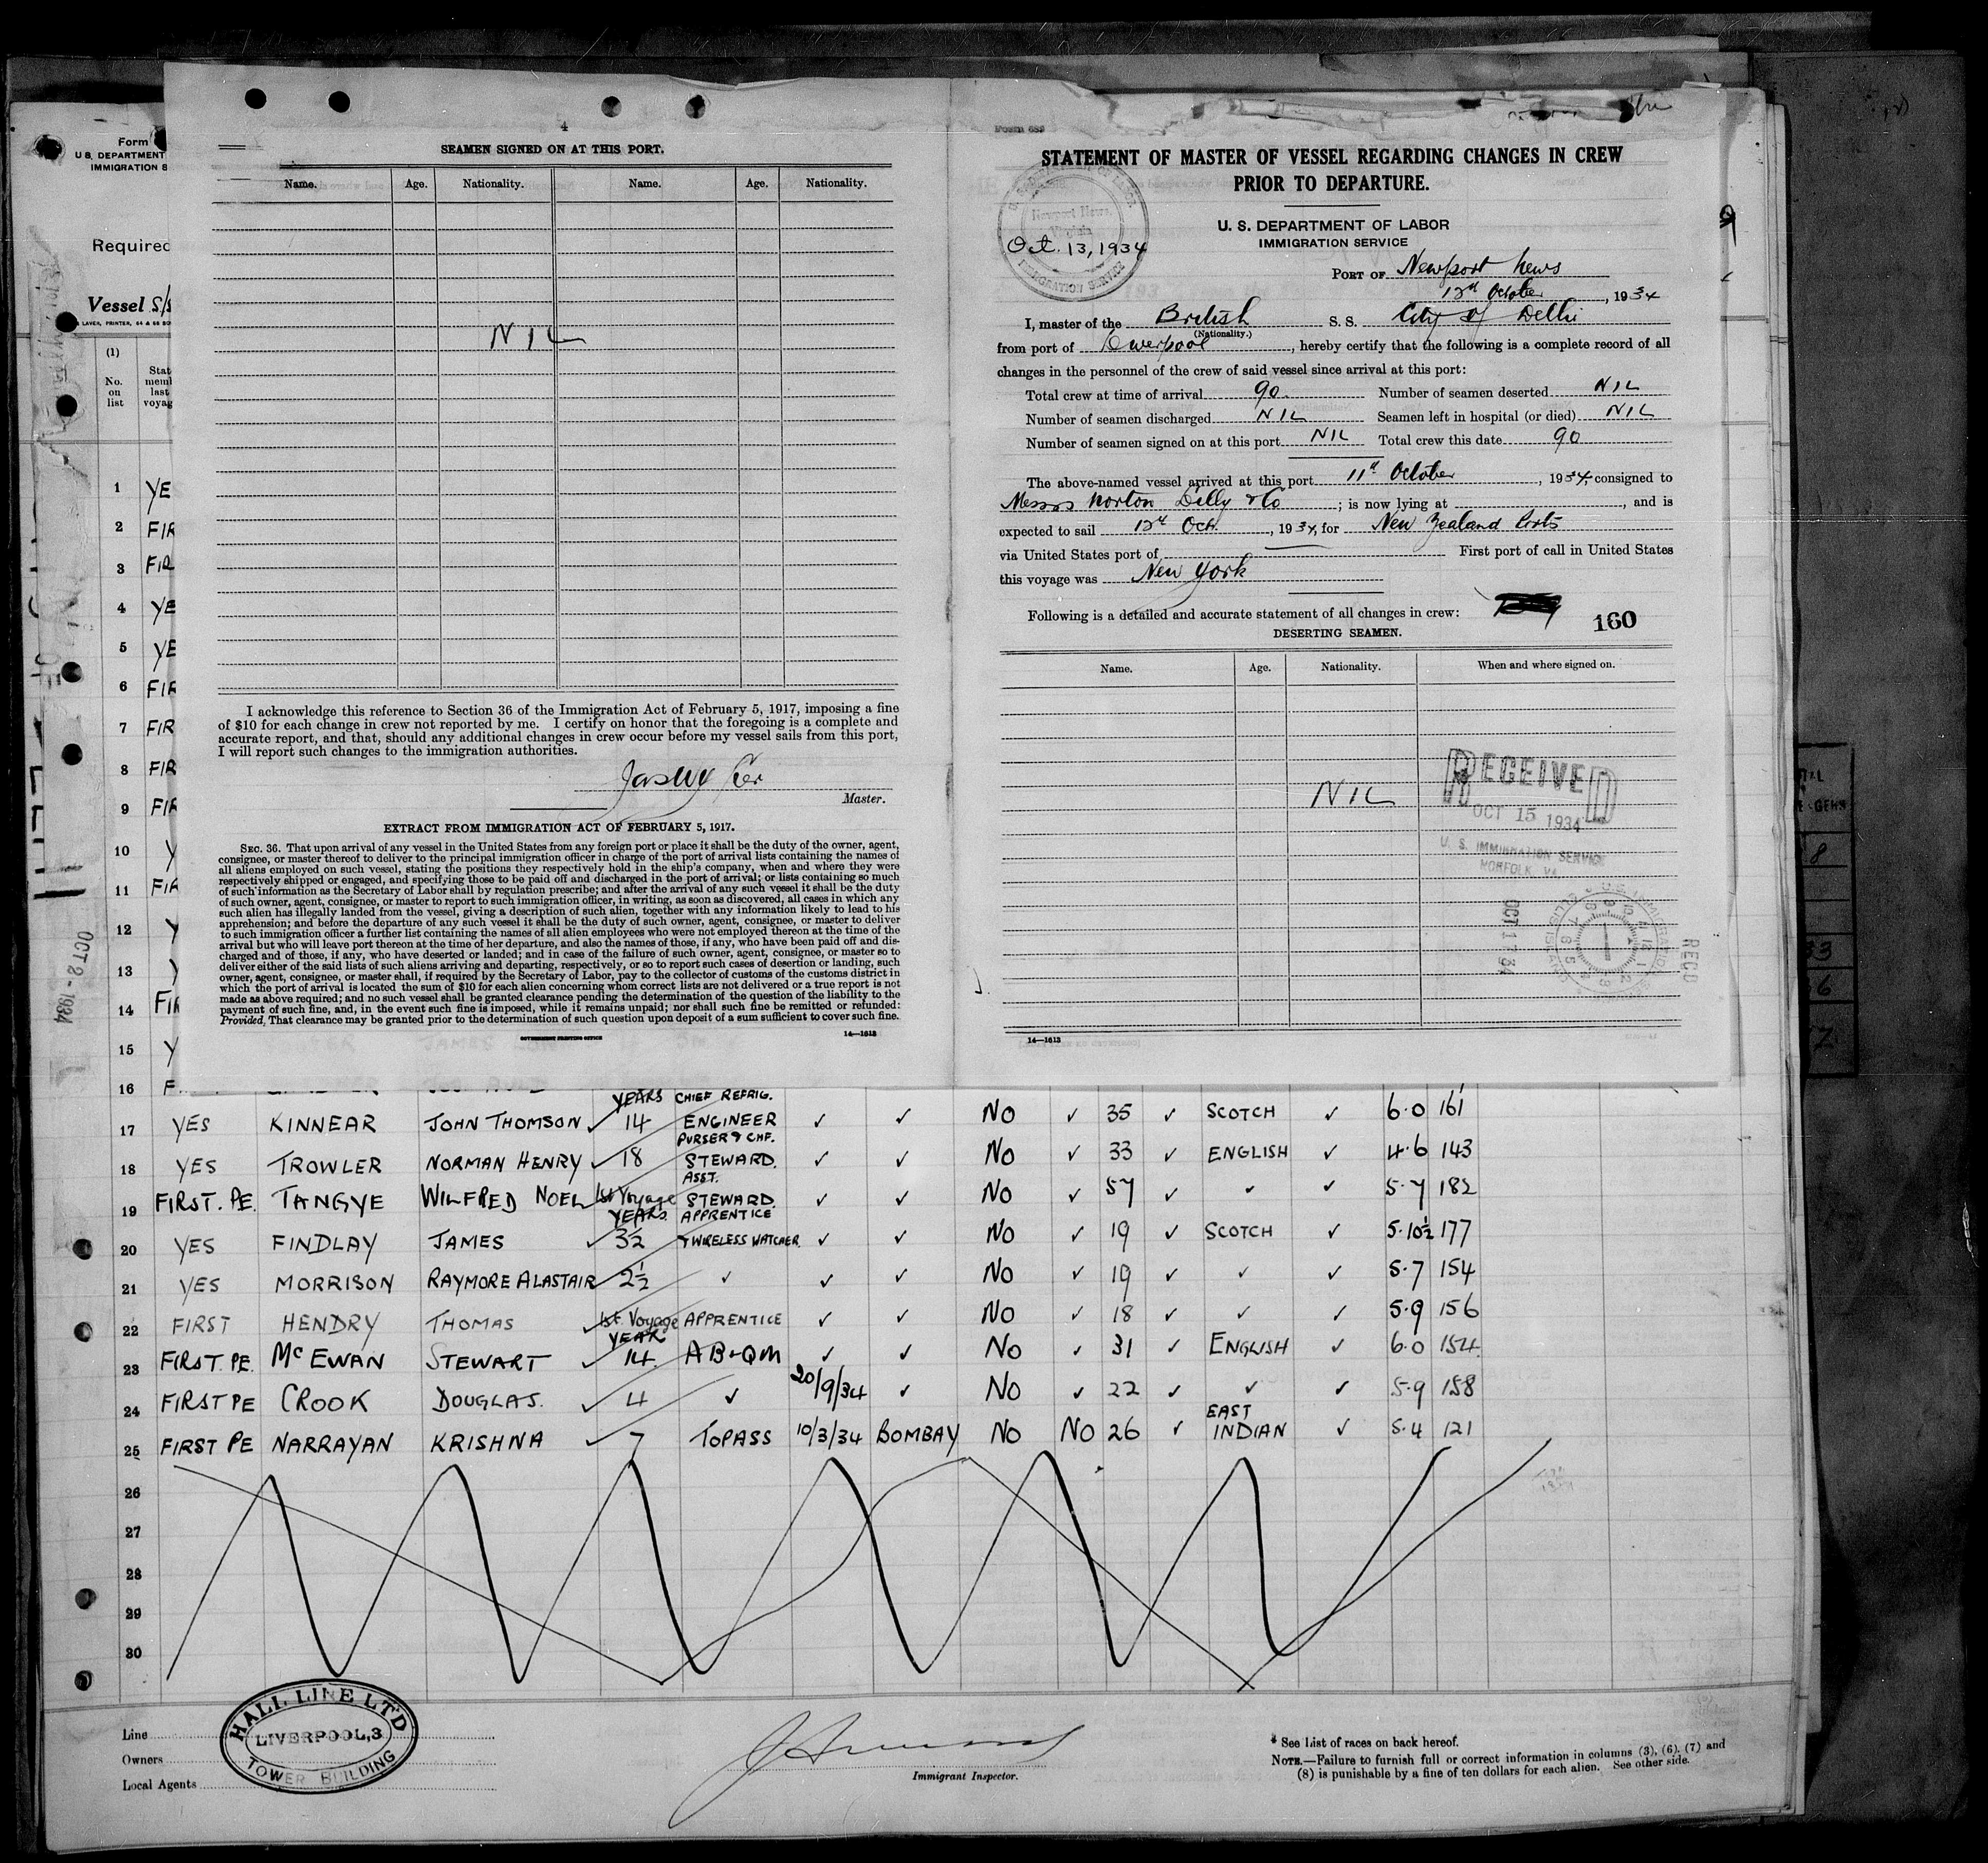 Form
U.S. DEPARTMENT
IMMIGRATION S
Required
Vessel S/S
(1)
No.
on
list
Stat
meml
last
voyag
1 YE
2 FIR
3 FIR
4 YE
5 YE
6 FIR
7 FIR
8 FIR
9 FIR
10 Y
11 FIR
12 Y
13 Y
14 FIR
15 Y
16 F
OCT 2 - 1934
4
SEAMEN SIGNED ON AT THIS PORT.
Name. Age. Nationality. Name. Age. Nationality.
NIL
I acknowledge this reference to Section 36 of the Immigration Act of February 5, 1917, imposing a fine
of $10 for each change in crew not reported by me. I certify on honor that the foregoing is a complete and
accurate report, and that, should any additional changes in crew occur before my vessel sails from this port,
I will report such changes to the immigration authorities.
Master.
EXTRACT FROM IMMIGRATION ACT OF FEBRUARY 5, 1917.
SEC. 36. That upon arrival of any vessel in the United States from any foreign port or place it shall be the duty of the owner, agent,
consignee, or master thereof to deliver to the principal immigration officer in charge of the port of arrival lists containing the names of
all aliens employed on such vessel, stating the positions they respectively hold in the ship's company, when and where they were
respectively shipped or engaged, and specifying those to be paid off and discharged in the port of arrival; or lists containing so much
of such information as the Secretary of Labor shall by regulation prescribe; and after the arrival of any such vessel it shall be the duty
of such owner, agent, consignee, or master to report to such immigration officer, in writing, as soon as discovered, all cases in which any
such alien has illegally landed from the vessel, giving a description of such alien, together with any information likely to lead to his
apprehension; and before the departure of any such vessel it shall be the duty of such owner, agent, consignee, or master to deliver
to such immigration officer a further list containing the names of all alien employees who were not employed thereon at the time of the
arrival but who will leave port thereon at the time of her departure, and also the names of those, if any, who have been paid off and dis-
charged and of those, if any, who have deserted or landed; and in case of the failure of such owner, agent, consignee, or master so to
deliver either of the said lists of such aliens arriving and departing, respectively, or so to report such cases of desertion or landing, such
owner, agent, consignee, or master shall, if required by the Secretary of Labor, pay to the collector of customs of the customs district in
which the port of arrival is located the sum of $10 for each alien concerning whom correct lists are not delivered or a true report is not
made as above required; and no such vessel shall be granted clearance pending the determination of the question of the liability to the
payment of such fine, and, in the event such fine is imposed, while it remains unpaid; nor shall such fine be remitted or refunded:
Provided, That clearance may be granted prior to the determination of such question upon deposit of a sum sufficient to cover such fine.
GOVERNMENT PRINTING OFFICE 14—1613
Form 689
STATEMENT OF MASTER OF VESSEL REGARDING CHANGES IN CREW
PRIOR TO DEPARTURE.
U. S. DEPARTMENT OF LABOR
IMMIGRATION SERVICE
Newport News,
Virginia
Oct. 13, 1934
IMMIGRATION SERVICE
PORT OF Newport News
12th October, 1934
I, master of the British S. S. City of Delhi
(Nationality.)
from port of Liverpool, hereby certify that the following is a complete record of all
changes in the personnel of the crew of said vessel since arrival at this port:
Total crew at time of arrival 90. Number of seamen deserted NIL
Number of seamen discharged NIL Seamen left in hospital (or died) NIL
Number of seamen signed on at this port NIL Total crew this date 90
The above-named vessel arrived at this port 11th October, 1934, consigned to
Messrs Norton Lilly & Co; is now lying at , and is
expected to sail 12th Oct., 1934, for New Zealand Ports
via United States port of First port of call in United States
this voyage was New York
Following is a detailed and accurate statement of all changes in crew:
160
DESERTING SEAMEN.
Name. Age. Nationality. When and where signed on.
NIL
RECEIVED
OCT 15 1934
U. S. IMMIGRATION SERVICE
NORFOLK VA
OCT 17 34
REC'D
14—1613
17 YES KINNEAR JOHN THOMSON ✓ 14 YEARS CHIEF REFRIG. ENGINEER ✓ ✓ NO ✓ 35 ✓ SCOTCH ✓ 6.0 161
18 YES TROWLER NORMAN HENRY ✓ 18 PURSER & CHF. STEWARD. ✓ ✓ NO ✓ 33 ✓ ENGLISH ✓ 4.6 143
19 FIRST. PE. TANGYE WILFRED NOEL 1st Voyage ASST. STEWARD. ✓ ✓ NO ✓ 57 ✓ ✓ ✓ 5.7 182
20 YES FINDLAY JAMES ✓ YEARS. 3½ APPRENTICE & WIRELESS WATCHER. ✓ ✓ NO ✓ 19 ✓ SCOTCH ✓ 5.10½ 177
21 YES MORRISON RAYMORE ALASTAIR ✓ 2½ ✓ ✓ ✓ NO ✓ 19 ✓ ✓ ✓ 5.7 154
22 FIRST HENDRY THOMAS ✓ 1st Voyage APPRENTICE ✓ ✓ NO ✓ 18 ✓ ✓ ✓ 5.9 156
23 FIRST. PE. McEWAN STEWART ✓ YEAR 14. AB & QM ✓ ✓ NO ✓ 31 ✓ ENGLISH ✓ 6.0 154.
24 FIRST PE CROOK DOUGLAS. ✓ 4 ✓ 20/9/34 ✓ NO ✓ 22 ✓ ✓ ✓ 5.9 158
25 FIRST PE NARRAYAN KRISHNA ✓ 7 TOPASS 10/3/34 BOMBAY NO NO 26 ✓ EAST INDIAN ✓ 5.4 121
26
27
28
29
30
Line
Owners
Local Agents
HALL LINE LTD
LIVERPOOL,3
TOWER BUILDING
Immigrant Inspector.
* See List of races on back hereof.
NOTE.—Failure to furnish full or correct information in columns (3), (6), (7) and
(8) is punishable by a fine of ten dollars for each alien. See other side.